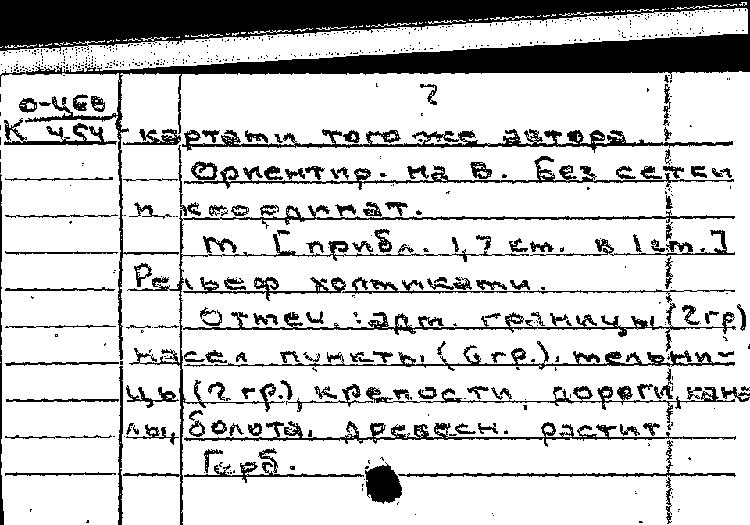 2
О-ЦБВ
К 454 картами того же автора.
Ориентир. на В. Без сетки
и координат.
М. [прибл. 1,7 км. в 1 см.]
Рельеф холмиками.
Отмеч.: адм. границы (2 гр)
насел пункты (6 гр.), мельни-
цы (2 гр.), крепости, дороги, кана
лы, болота, древесн. растит.
Герб.